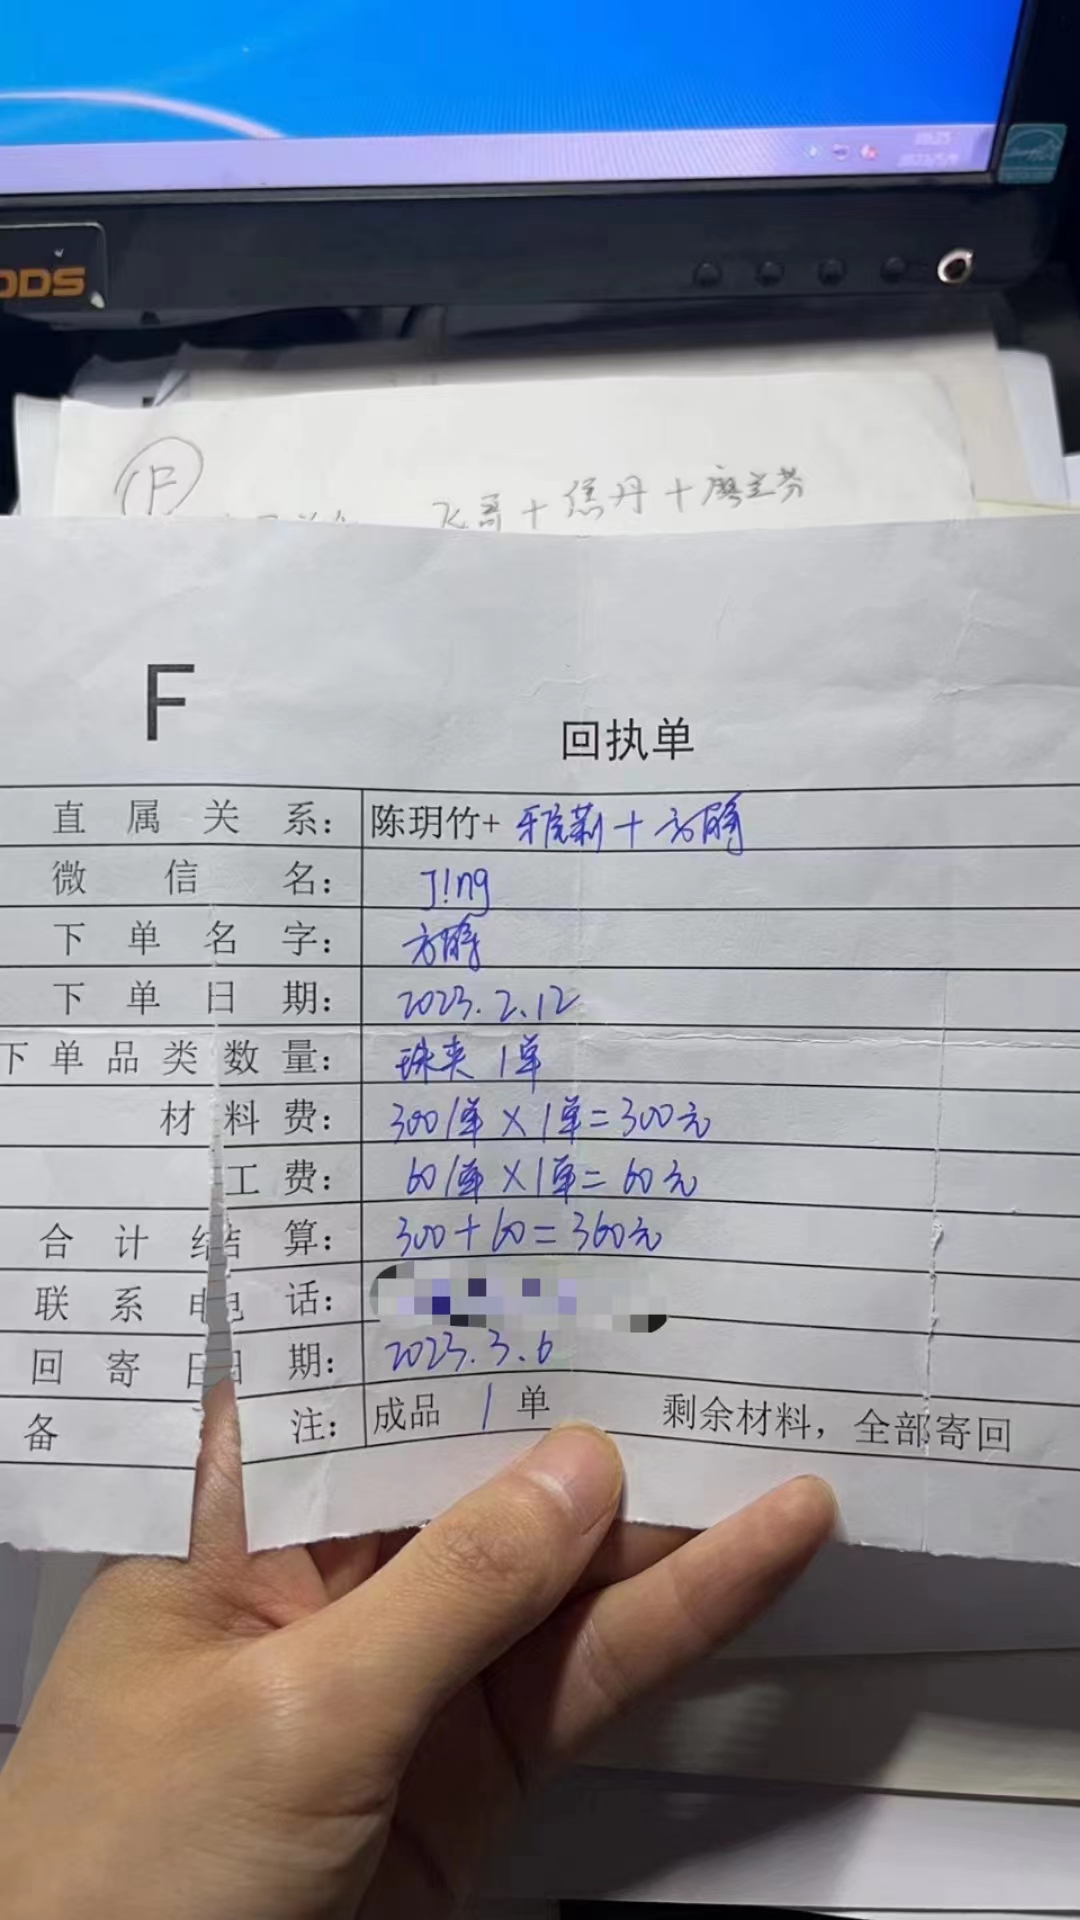 ODS
F
飞哥+焦丹+廖兰芬
F
回执单
直属关系：陈玥竹+雅莉+方晴
微信名：J!ng
下单名字：方晴
下单日期：2023.2.12
下单品类数量：珠夹 1单
材料费：300/单×1单=300元
工费：60/单×1单=60元
合计结算：300+60=360元
联系电话：
回寄日期：2023.3.6
备注：成品 1 单 剩余材料，全部寄回